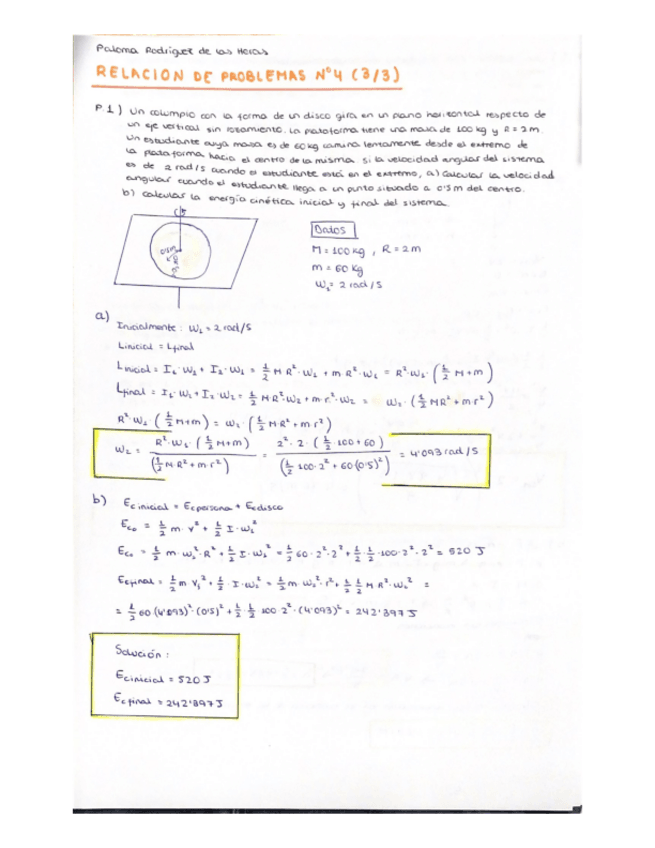 Paloma Rodriguez de las Heras
RELACION DE PROBLEMAS Nº4 (3/3)
P.1) Un columpio con la forma de un disco gira en un plano horizontal respecto de
un eje vertical sin rozamiento. La plataforma tiene una masa de 100 kg y R = 2m.
Un estudiante cuya masa es de 60kg camina lentamente desde el extremo de
la plataforma hacia el centro de la misma. Si la velocidad angular del sistema
es de 2 rad/s cuando el estudiante está en el extremo, a) Calcular la velocidad
angular cuando el estudiante llega a un punto situado a 0'5 m del centro.
b) Calcular la energía cinética inicial y final del sistema.
Datos
M = 100 kg , R = 2m
m = 60 kg
W₁ = 2 rad/s
0'5m
R
a)
Inicialmente: W₁ = 2 rad/s
Linicial = Lfinal
Linicial = I₁·W₁ + I₂·W₁ = 1/2 M R²·W₁ + m R²·W₁ = R²·W₁·(1/2 M+m)
Lfinal = I₁·W₂ + I₂·W₂ = 1/2 M R²·W₂ + m·r²·W₂ = W₂·(1/2 MR² + m·r²)
R²·W₁ (1/2 M+m) = W₂·(1/2 M R² + m r²)
W₂ = R²·W₁·(1/2 M+m) / (1/2 M R² + m·r²) = 2²·2·(1/2·100+60) / (1/2·100·2² + 60(0'5)²) = 4'093 rad/s
b) Ec inicial = Ec persona + Ec disco
Eco = 1/2 m·v² + 1/2 I·W₁²
Eco = 1/2 m·W₁²·R² + 1/2 I·W₁² = 1/2 60·2²·2² + 1/2 1/2·100·2²·2² = 520 J
Ecfinal = 1/2 m V₁² + 1/2·I·W₂² = 1/2 m·W₂²·r² + 1/2 1/2 M R²·W₂² =
= 1/2 60 (4'093)²·(0'5)² + 1/2 1/2 100 2²·(4'093)² = 242'897 J
Solución:
Ec inicial = 520 J
Ec final = 242'897 J